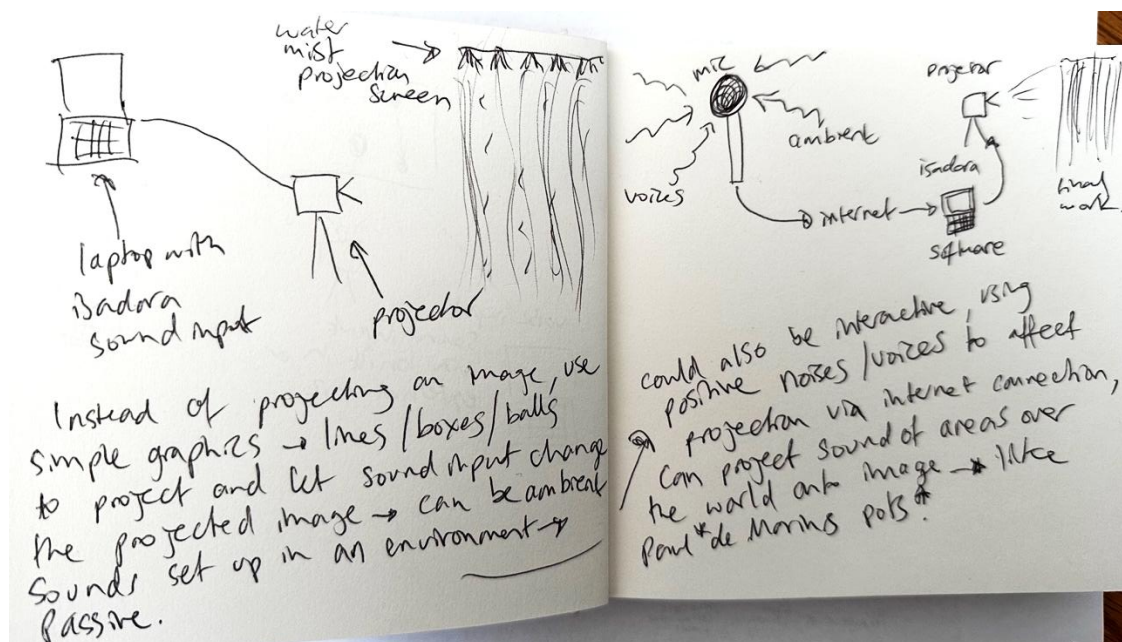 water
mist
projection
screen
laptop with
isadora
sound input
projector
Instead of projecting an image, use
simple graphics → lines/boxes/balls
to project and let sound input change
the projected image → can be ambient
sounds set up in an environment →
passive.
mic
ambient
voices
internet
projector
isadora
software
final
work.
could also be interactive, using
positive noises/voices to affect
projection via internet connection,
can project sound of areas over
the world onto image → like
Paul *de Marinis pots*.